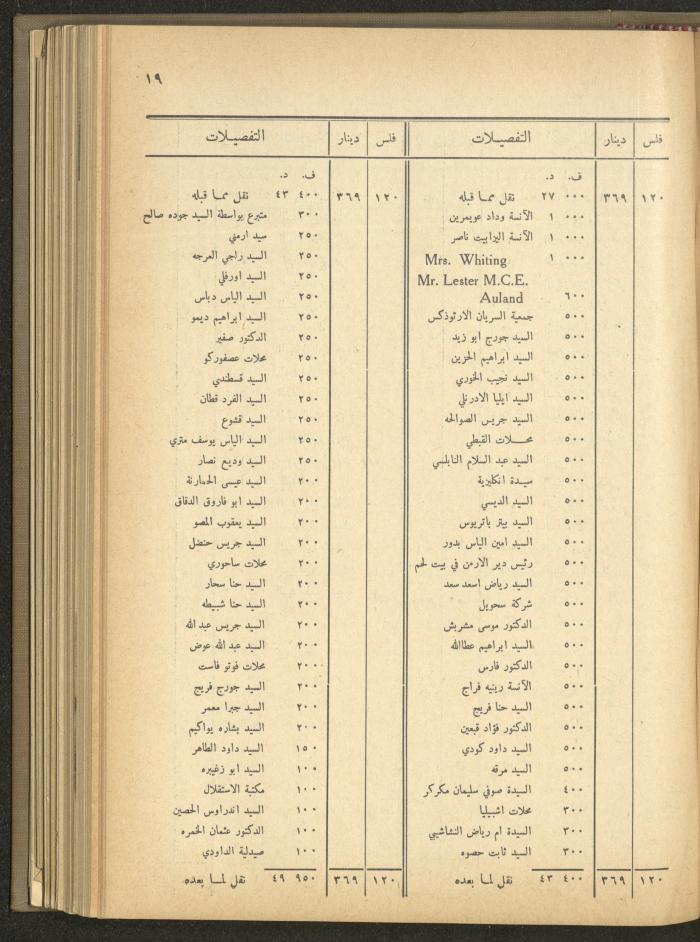 ١٩
فلس دينار التفصيلات
ف. د.
١٢٠ ٣٦٩ ٠٠٠ ٢٧ نقل مما قبله
٠٠٠ ١ الآنسة وداد عويمرين
٠٠٠ ١ الآنسة اليزابيت ناصر
٠٠٠ ١ Mrs. Whiting
Mr. Lester M.C.E.
٦٠٠ Auland
٥٠٠ جمعية السريان الارثوذكس
٥٠٠ السيد جورج ابو زيد
٥٠٠ السيد ابراهيم الحزين
٥٠٠ السيد نجيب الخوري
٥٠٠ السيد ايليا الادرنلي
٥٠٠ السيد جريس الصوالحه
٥٠٠ محلات القبطي
٥٠٠ السيد عبد السلام النابلسي
٥٠٠ سيدة انكليزية
٥٠٠ السيد الديسي
٥٠٠ السيد بيتر باتريوس
٥٠٠ السيد امين الياس بدور
٥٠٠ رئيس دير الارمن في بيت لحم
٥٠٠ السيد رياض اسعد سعد
٥٠٠ شركة سحويل
٥٠٠ الدكتور موسى مشربش
٥٠٠ السيد ابراهيم عطاالله
٥٠٠ الدكتور فارس
٥٠٠ الآنسة رينيه فراج
٥٠٠ السيد حنا فريج
٥٠٠ الدكتور فؤاد قبعين
٥٠٠ السيد داود كودي
٥٠٠ السيد مرقه
٤٠٠ السيدة صوفي سليمان مكركر
٣٠٠ محلات اشبيليا
٣٠٠ السيدة ام رياض النشاشيبي
٣٠٠ السيد ثابت حصوه
١٢٠ ٣٦٩ ٤٠٠ ٤٣ نقل لما بعده
فلس دينار التفصيلات
ف. د.
١٢٠ ٣٦٩ ٤٠٠ ٤٣ نقل مما قبله
٣٠٠ متبرع بواسطة السيد جوده صالح
٢٥٠ سيد ارمني
٢٥٠ السيد راجي العرجه
٢٥٠ السيد اورفلي
٢٥٠ السيد الياس دباس
٢٥٠ السيد ابراهيم ديمو
٢٥٠ الدكتور صفير
٢٥٠ محلات عصفوركو
٢٥٠ السيد قسطندي
٢٥٠ السيد الفرد قطان
٢٥٠ السيد قشوع
٢٥٠ السيد الياس يوسف متري
٢٥٠ السيد وديع نصار
٢٠٠ السيد عيسى الحمارنة
٢٠٠ السيد ابو فاروق الدقاق
٢٠٠ السيد يعقوب المصو
٢٠٠ السيد جريس حنضل
٢٠٠ محلات ساحوري
٢٠٠ السيد حنا سحار
٢٠٠ السيد حنا شبيطه
٢٠٠ السيد جريس عبد الله
٢٠٠ السيد عبد الله عوض
٢٠٠ محلات فوتو فاست
٢٠٠ السيد جورج فريج
٢٠٠ السيد جبرا معمر
٢٠٠ السيد بشاره يواكيم
١٥٠ السيد داود الطاهر
١٠٠ السيد ابو زغيبره
١٠٠ مكتبة الاستقلال
١٠٠ السيد اندراوس الحصين
١٠٠ الدكتور عثمان الخمره
١٠٠ صيدلية الداودي
١٢٠ ٣٦٩ ٩٥٠ ٤٩ نقل لما بعده